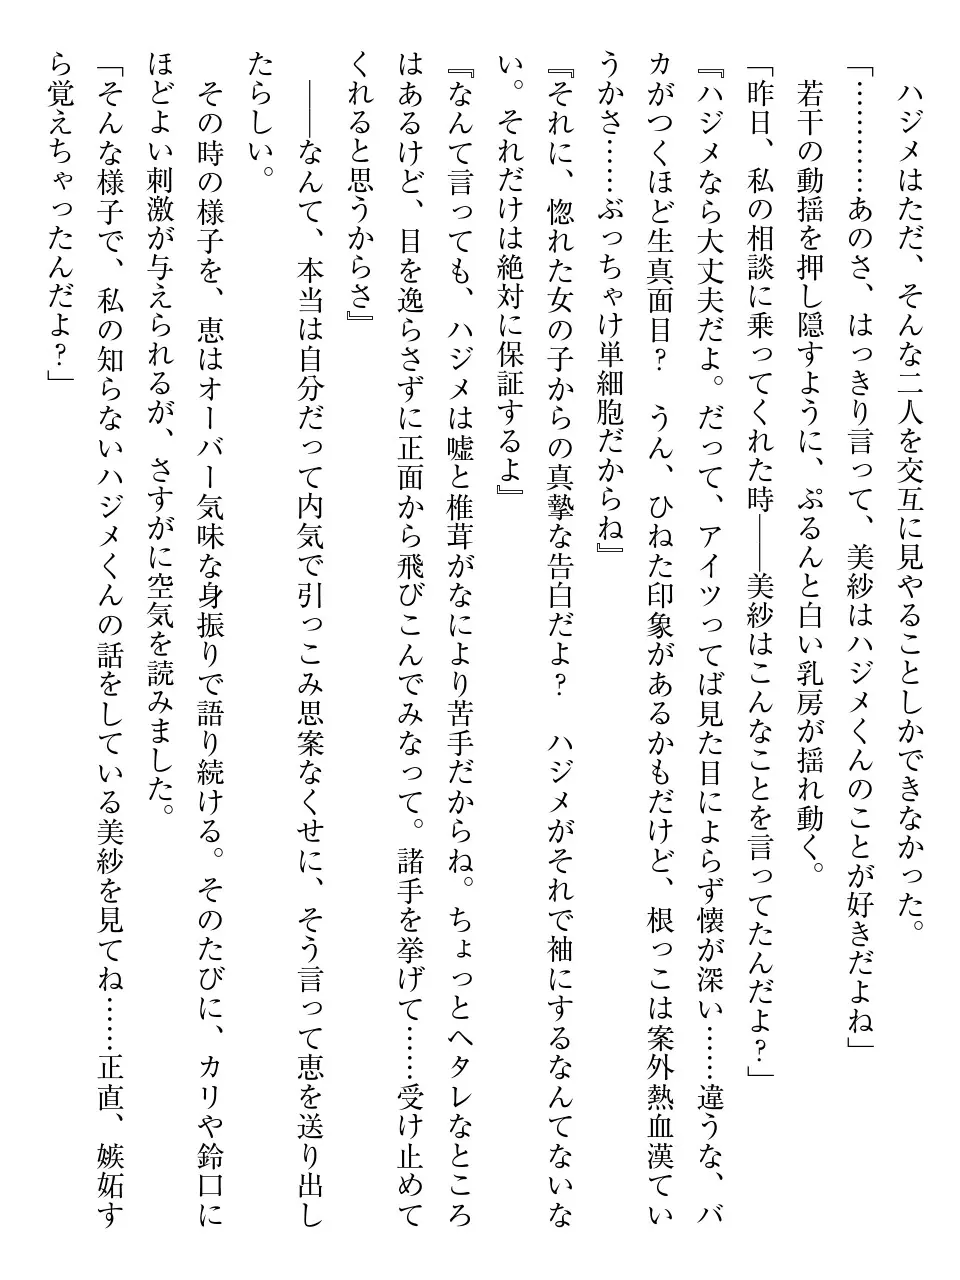 ハジメはただ、そんな二人を交互に見やることしかできなかった。
「…………あのさ、はっきり言って、美紗はハジメくんのことが好きだよね」
若干の動揺を押し隠すように、ぷるんと白い乳房が揺れ動く。
「昨日、私の相談に乗ってくれた時――美紗はこんなことを言ってたんだよ？」
『ハジメなら大丈夫だよ。だって、アイツってば見た目によらず懐が深い……違うな、バ
カがつくほど生真面目？　うん、ひねた印象があるかもだけど、根っこは案外熱血漢てい
うかさ……ぶっちゃけ単細胞だからね』
『それに、惚れた女の子からの真摯な告白だよ？　ハジメがそれで袖にするなんてないな
い。それだけは絶対に保証するよ』
『なんて言っても、ハジメは嘘と椎茸がなにより苦手だからね。ちょっとヘタレなところ
はあるけど、目を逸らさずに正面から飛びこんでみなって。諸手を挙げて……受け止めて
くれると思うからさ』
――なんて、本当は自分だって内気で引っこみ思案なくせに、そう言って恵を送り出し
たらしい。
その時の様子を、恵はオーバー気味な身振りで語り続ける。そのたびに、カリや鈴口に
ほどよい刺激が与えられるが、さすがに空気を読みました。
「そんな様子で、私の知らないハジメくんの話をしている美紗を見てね……正直、嫉妬す
ら覚えちゃったんだよ？」